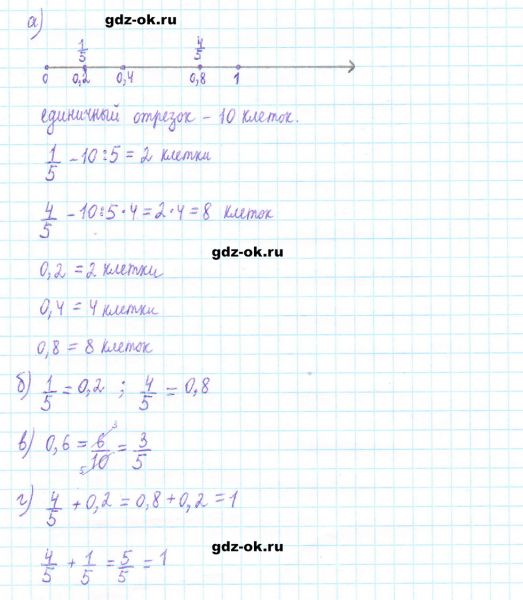 а)
gdz-ok.ru
1/5 4/5
0 0,2 0,4 0,8 1
единичный отрезок – 10 клеток.
1/5 – 10:5 = 2 клетки
4/5 – 10:5·4 = 2·4 = 8 клеток
gdz-ok.ru
0,2 = 2 клетки
0,4 = 4 клетки
0,8 = 8 клеток
б) 1/5 = 0,2 ; 4/5 = 0,8
в) 0,6 = 6/10 = 3/5
3
5
г) 4/5 + 0,2 = 0,8 + 0,2 = 1
gdz-ok.ru
4/5 + 1/5 = 5/5 = 1